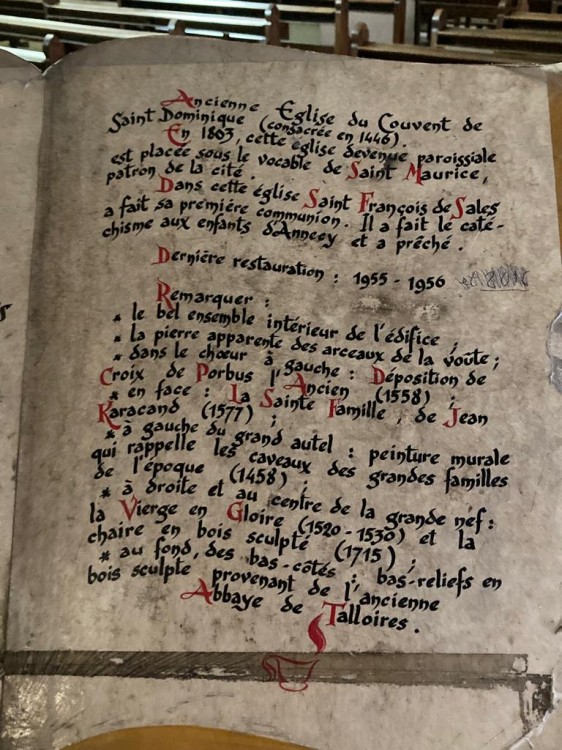 Ancienne Église du Couvent de
Saint Dominique (consacrée en 1446).
En 1803, cette église devenue paroissiale
est placée sous le vocable de Saint Maurice,
patron de la cité.
Dans cette église Saint François de Sales
a fait sa première communion. Il a fait le caté-
chisme aux enfants d'Annecy et a prêché.
Dernière restauration : 1955 - 1956
Remarquer :
* le bel ensemble intérieur de l'édifice ;
* la pierre apparente des arceaux de la voûte ;
* dans le chœur à gauche : Déposition de
Croix de Porbus l'Ancien (1558) ;
* en face : La Sainte Famille, de Jean
Karacand (1577) ;
* à gauche du grand autel : peinture murale
qui rappelle les caveaux des grandes familles
de l'époque (1458) ;
* à droite et au centre de la grande nef :
la Vierge en Gloire (1520 - 1530) et la
chaire en bois sculpté (1715) ;
* au fond, des bas-côtés : bas-reliefs en
bois sculpté provenant de l'ancienne
Abbaye de Talloires.